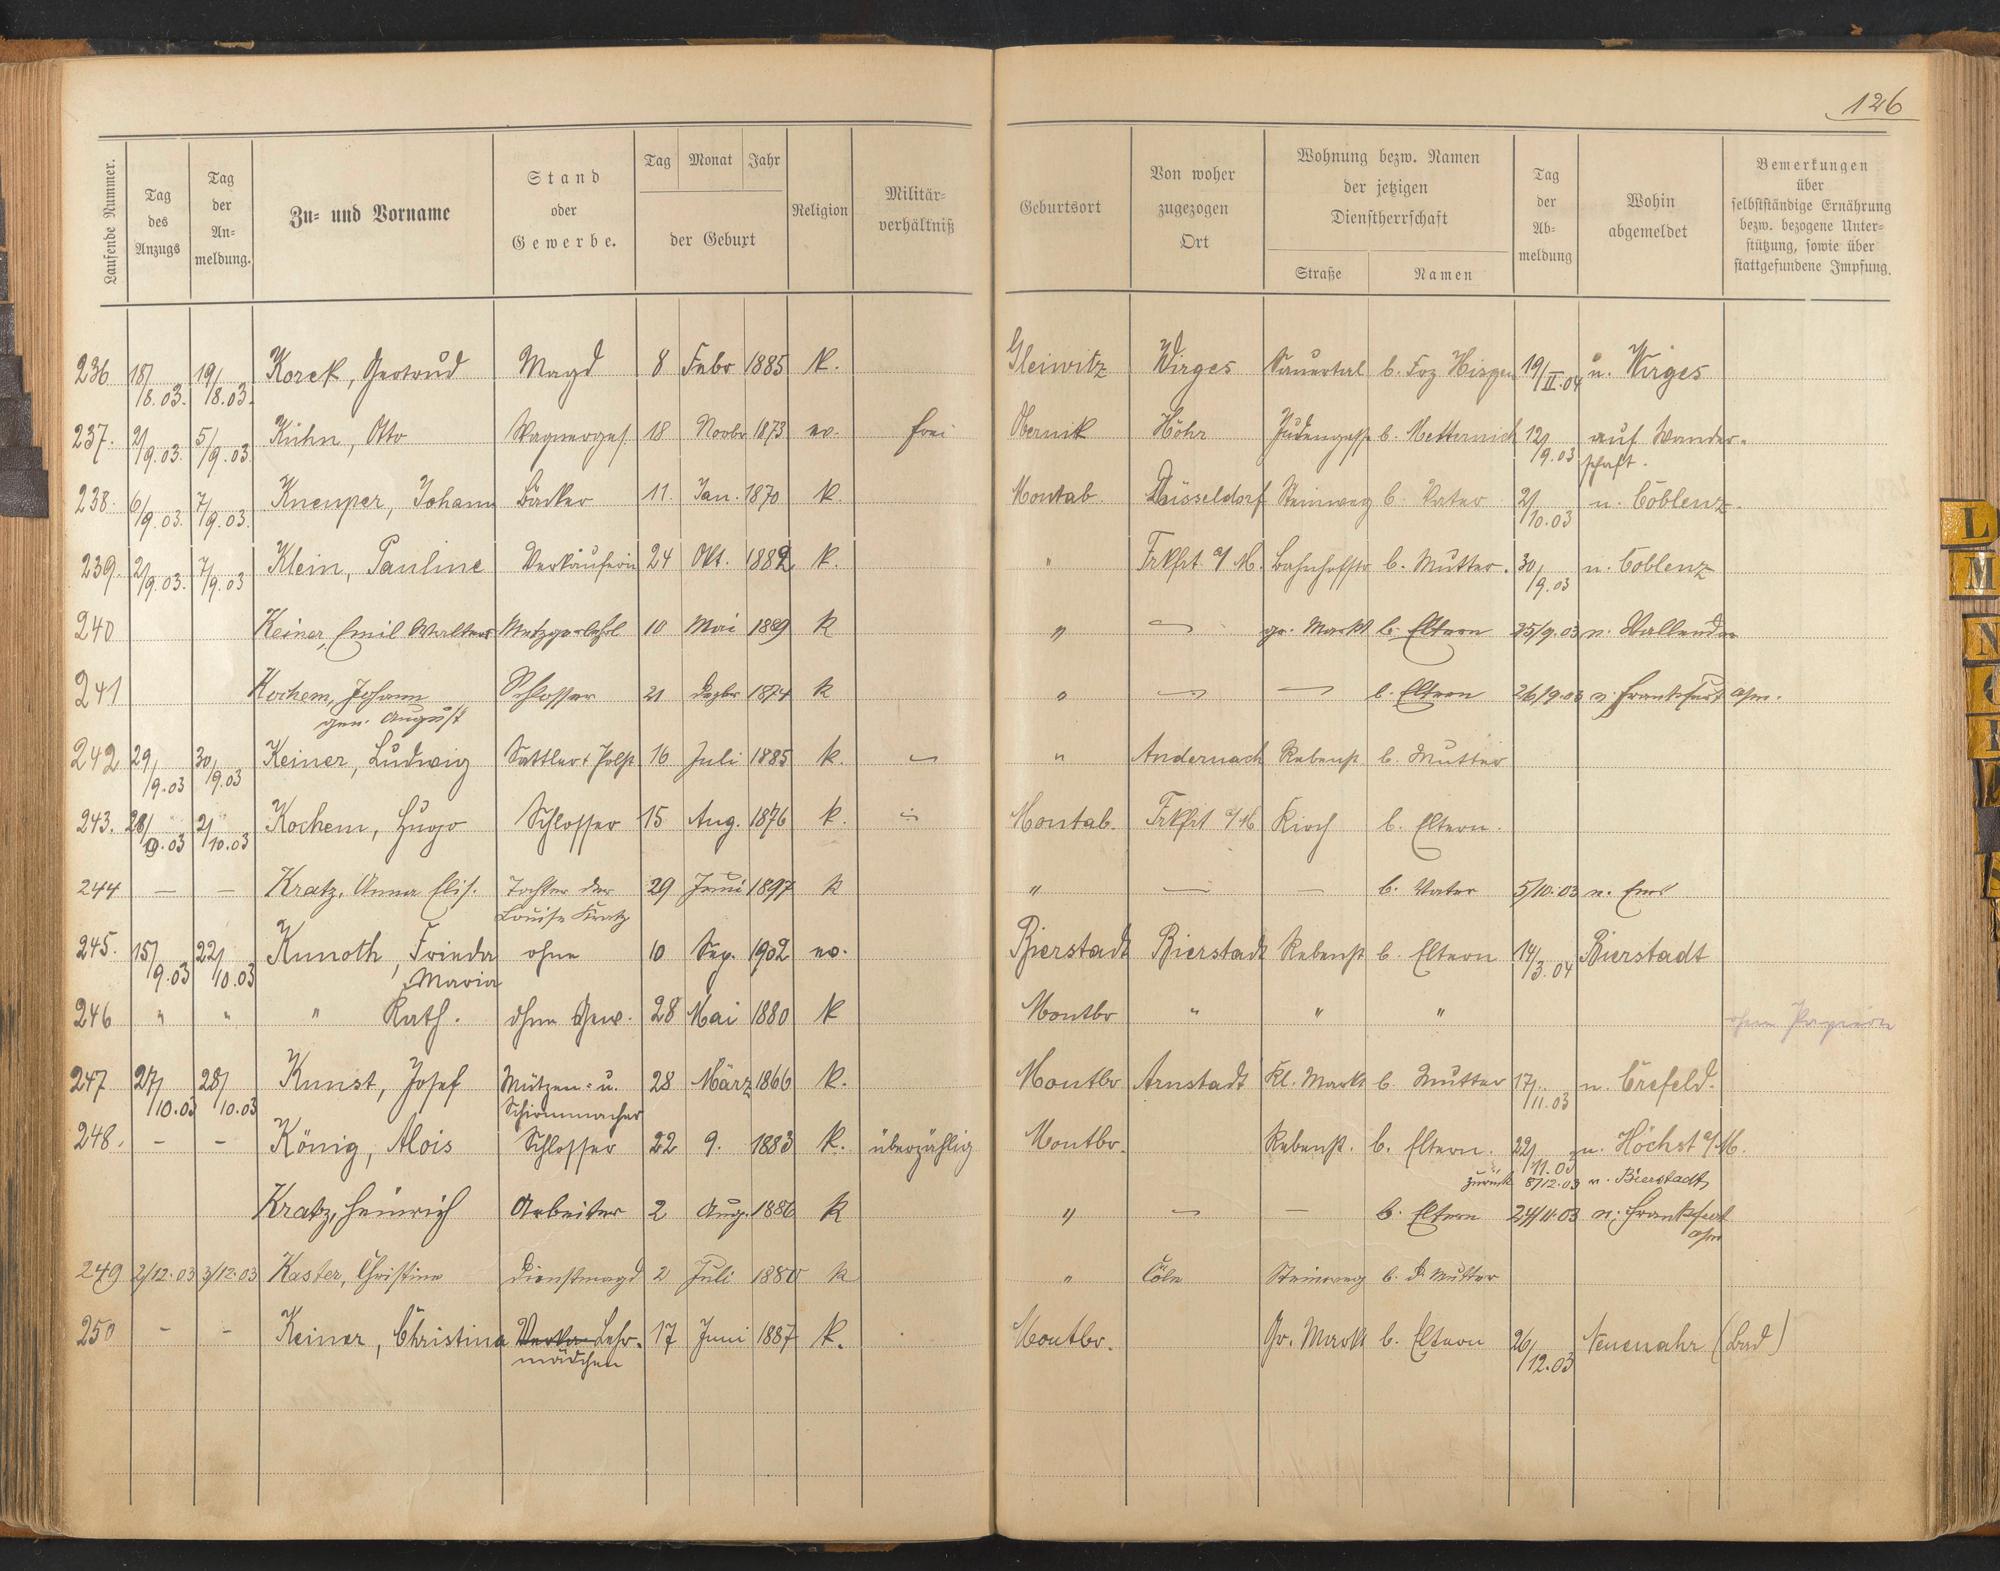 126
Laufende Nummer.
Tag des Anzugs
Tag der An-meldung.
Zu- und Vorname
Stand oder Gewerbe.
Tag Monat Jahr
der Geburt
Religion
Militär-verhältniß
Geburtsort
Von woher zugezogen Ort
Wohnung bezw. Namen der jetzigen Dienstherrschaft
Straße Namen
Tag der Ab-meldung
Wohin abgemeldet
Bemerkungen über selbstständige Ernährung bezw. bezogene Unter-stützung, sowie über stattgefundene Impfung.
236 18/8.03. 19/8.03. Korek, Gertrud Magd 8 Febr 1885 k. Gleiwitz Wirges Sauertal b. Frz Hisgen 19/II.04 n. Wirges
237. 2/9.03. 5/9.03. Kühn, Otto Wagnerges. 18 Novbr 1873 ev. frei Obernik Höhr Judengasse b. Metternich 12/9.03 auf Wander-
schaft.
238. 6/9.03. 7/9.03. Kneuper, Johann Bäcker 11. Jan. 1870 k. Montab. Düsseldorf Steinweg b. Vater 2/10.03 n. Coblenz.
239. 2/9.03. 7/9.03 Klein, Pauline Verkäuferin 24 Okt. 1882 k. " Frkfrt a/M. Bahnhofstr b. Mutter. 30/9.03 n. Coblenz
240 Keiner, Emil Walter Metzgerlehrl 10 Mai 1889 k " — gr. Markt b. Eltern 25/9.03 n. Vallendar
241 Kochem, Johann Schlosser 21 Dezbr 1874 k " — — b. Eltern 26/9.03 n. Frankfurt a/m.
gen. August
242 29/9.03 30/9.03 Keiner, Ludwig Sattler & Polst 16 Juli 1885 k. — " Andernach Rebenst b. Mutter
243. 28/9.03 2/10.03 Kochem, Hugo Schlosser 15 Aug. 1876 k. — Montab. Frkfrt a/M Kirch b. Eltern.
244 — — Kratz, Anna Elis. Tochter der 29 Juni 1897 k " — — b. Vater 5/10.03 n. Ems
Louise Kratz
245. 15/9.03 22/10.03 Kunoth, Frieda ohne 10 Sep. 1902 ev. Bierstadt Bierstadt Rebenst b. Eltern 14/3.04 Bierstadt
Maria
246 " " " Kath. ohne Gew. 28 Mai 1880 k Montbr " " " ohne Papiere
247 27/10.03 28/10.03 Kunst, Josef Mützen- u. 28 März 1866 k. Montbr Arnstadt Kl. Markt b. Mutter 17/11.03 n. Crefeld.
Schirmmacher
248. — — König, Alois Schlosser 22 9. 1883 k. überzählig Montbr. Rebenst. b. Eltern. 22/11.03 n. Höchst a/M.
zurück 8/12.03 v. Bierstadt
Kratz, Heinrich Arbeiter 2 Aug. 1886 k " — — b. Eltern 24/11.03 n. Frankfurt
a/m
249 2/12.03 3/12.03 Kaster, Christine Dienstmagd 2 Juli 1880 k " Cöln Steinweg b. d. Mutter
250 — — Keiner, Christina Lehr- 17 Juni 1887 k. Montbr. Gr. Markt b. Eltern 26/12.03 Neuenahr (Bad)
mädchen
L
M
N